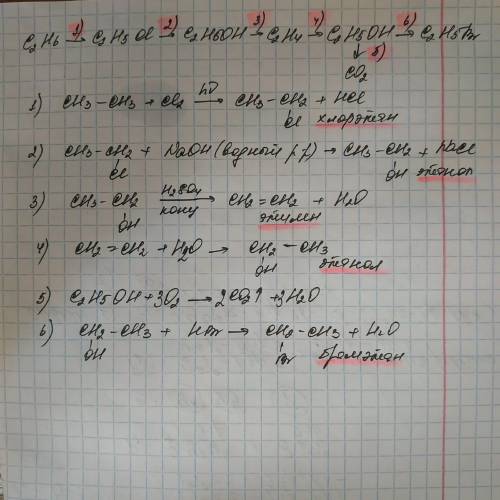 C2H6 1)→ C2H5Cl 2)→ C2H5OH 3)→ C2H4 4)→ C2H5OH 6)→ C2H5Br
↓ 5)
CO2
1) CH3-CH3 + Cl2 hν→ CH3-CH2 + HCl
Cl хлорэтан
2) CH3-CH2 + NaOH (водный р-р) → CH3-CH2 + NaCl
Cl OH этанол
3) CH3-CH2 H2SO4→ CH2=CH2 + H2O
OH конц этилен
4) CH2=CH2 + H2O → CH2-CH3
OH этанол
5) C2H5OH + 3O2 → 2CO2↑ + 3H2O
6) CH2-CH3 + HBr → CH2-CH3 + H2O
OH Br бромэтан